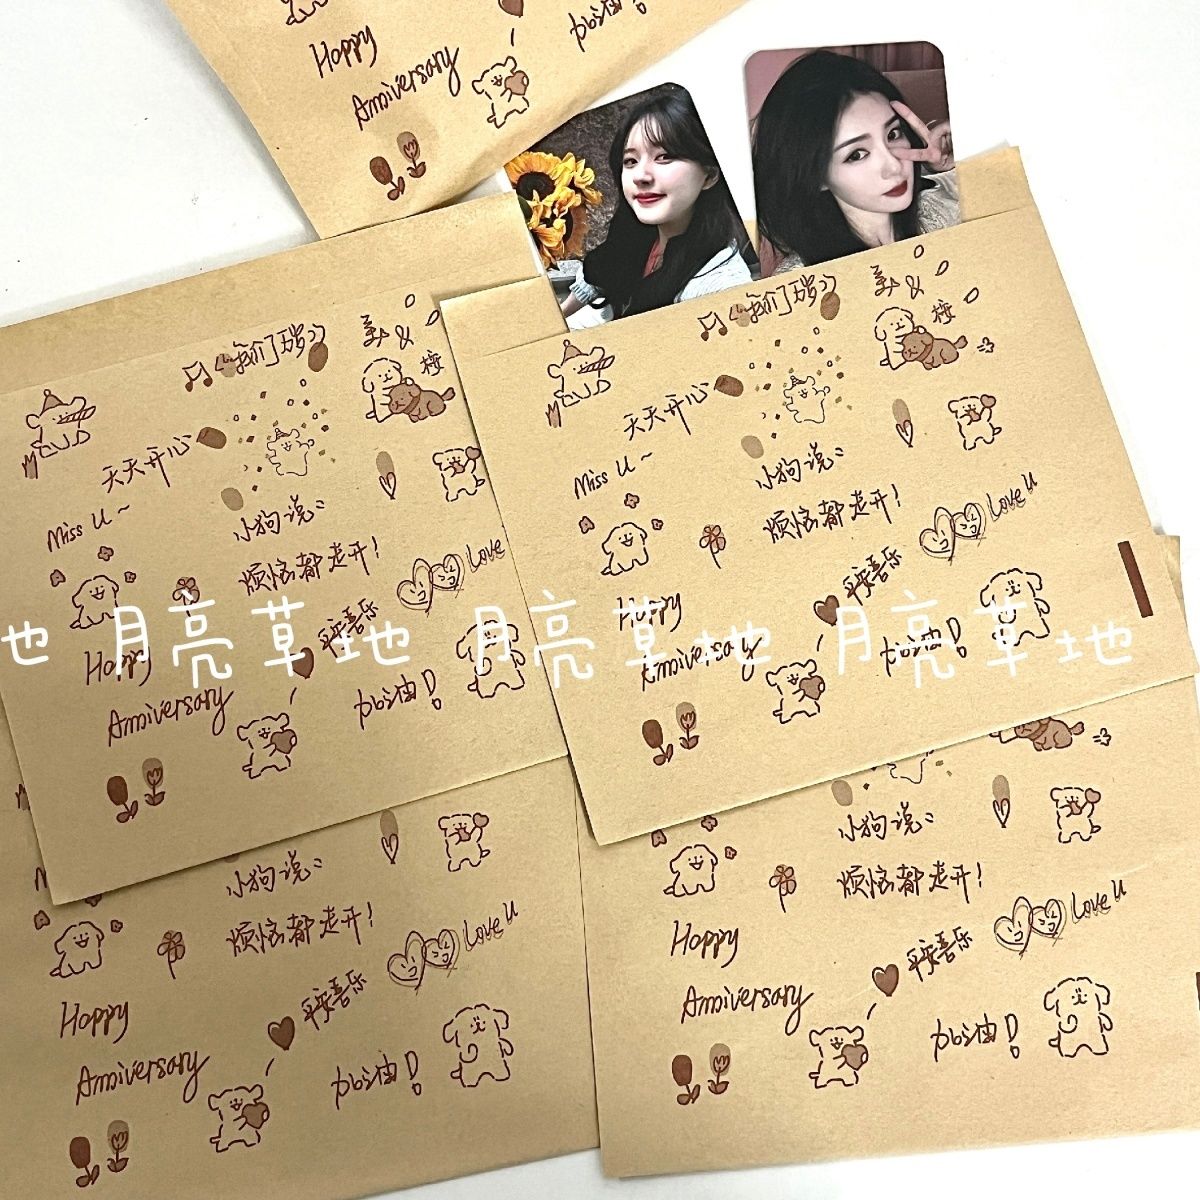 Happy
加油
Anniversary
《我们万岁》
美
&
天天开心
Miss U~
小狗说：
烦恼都走开！
Love
平安喜乐
Happy
加油！
Anniversary
《我们万岁》
美
&
天天开心
Miss U~
小狗说：
烦恼都走开！
Love U
平安喜乐
Happy
加油！
Anniversary
地 月亮草地 月亮草地 月亮草地
小狗说：
烦恼都走开！
Love U
平安喜乐
Happy
加油！
Anniversary
小狗说：
烦恼都走开！
Love U
平安喜乐
Happy
加油！
Anniversary